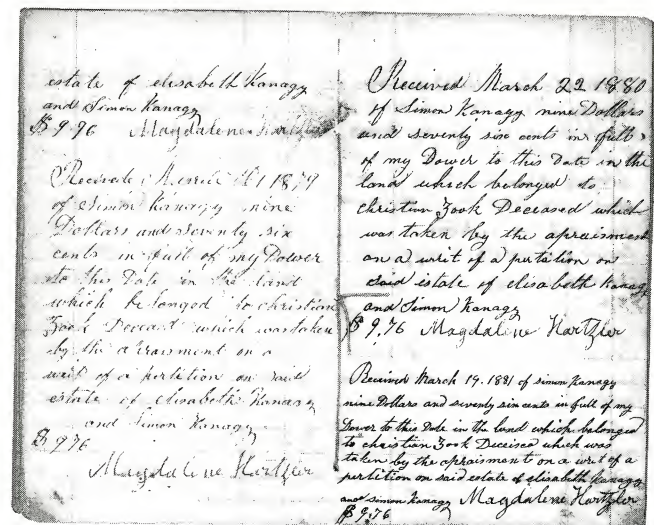 estate of elisabeth Kanagy
and Simon Kanagy
$9.76 Magdalene Hartzler
Received 1879
of Simon Kanagy nine
Dollars and seventy six
cents in full of my Dower
to this Date in the land
which belonged to christian
Zook Deceasd which was taken
by the on a
writ of a pertition on said
estate of elisabeth Kanagy
and Simon Kanagy
$9.76
Magdalene Hartzler
Received March 22 1880
of Simon Kanagy nine Dollars
and seventy six cents in full
of my Dower to this Date in the
land which belonged to
christian Zook Deceased which
was taken by the apraisment
on a writ of a pertition on
said estate of elisabeth Kanagy
and Simon Kanagy
$9.76 Magdalene Hartzler
Received March 19. 1881 of simon Kanagy
nine Dollars and seventy six cents in full of my
Dower to this Date in the land which belonged
to christian Zook Deceised which was
taken by the apraisment on a writ of a
pertition on said estate of elisabeth Kanagy
and simon Kanagy Magdalene Hartzler
$9.76